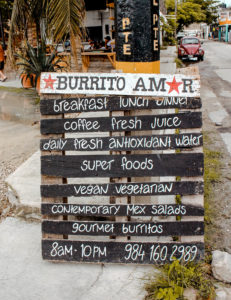 BURRITO AMOR
breakfast lunch dinner
coffee fresh juice
daily fresh antioxidant water
super foods
vegan vegetarian
contemporary Mex salads
gourmet burritos
8AM-10PM 984 160 2989